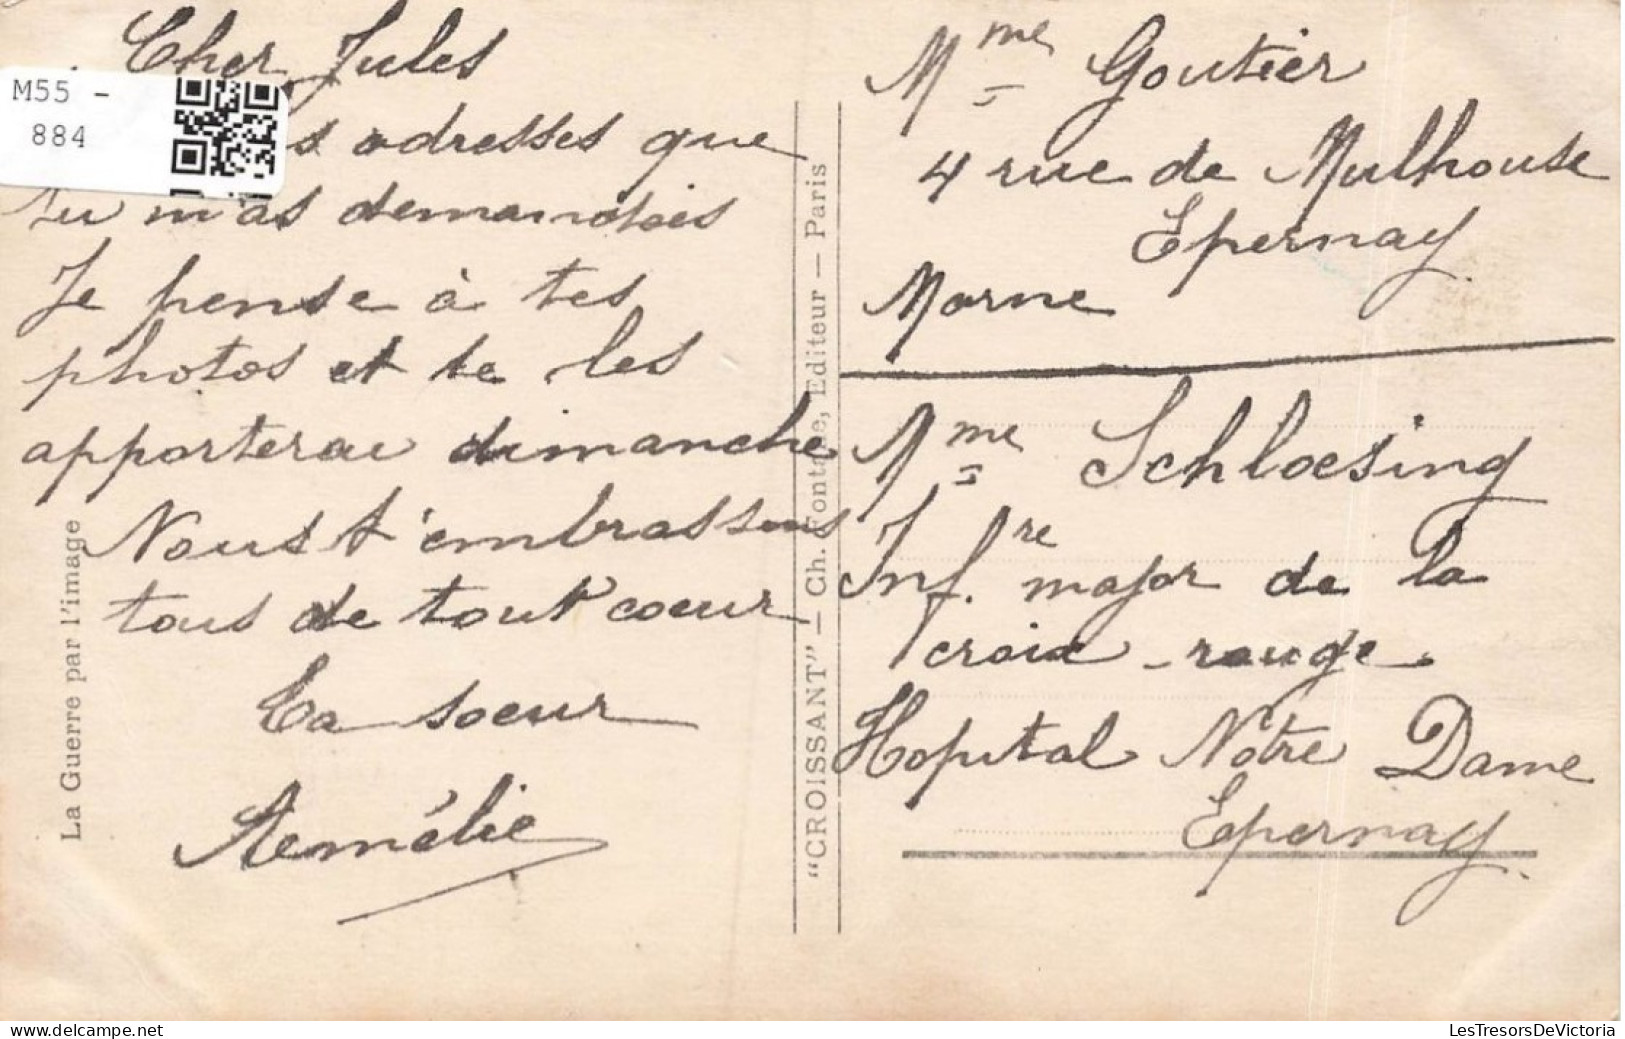 Cher Jules
s adresses que
tu m'as demandées
Je pense à tes
photos et te les
apporterai dimanche
Nous t'embrassons
tous de tout coeur
Ta soeur
Aemélie
Mme Goutier
4 rue de Mulhouse
Epernay
Marne
Mme Schloesing
Infre major de la
croix-rouge
Hopital Notre Dame
Epernay
La Guerre par l'image
"CROISSANT" — Ch. Fontane, Editeur — Paris
M55 -
884
LesTresorsDeVictoria
https://www.delcampe.net